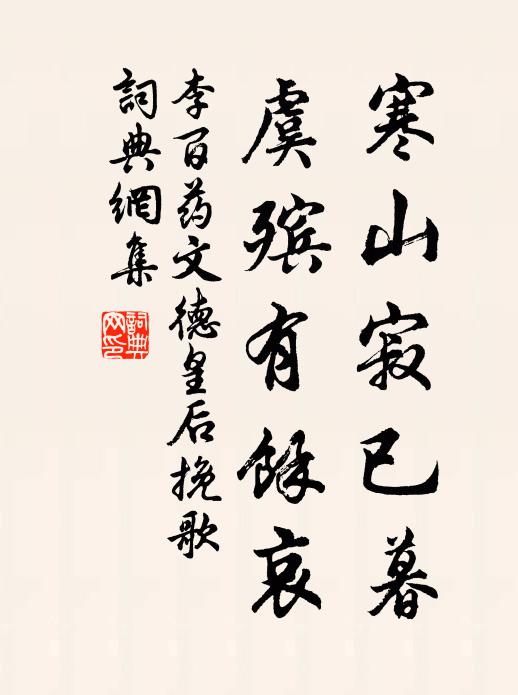 寒山寂已暮
虞殡有餘哀
李百药文德皇后挽歌
詞典網集
詞典网印